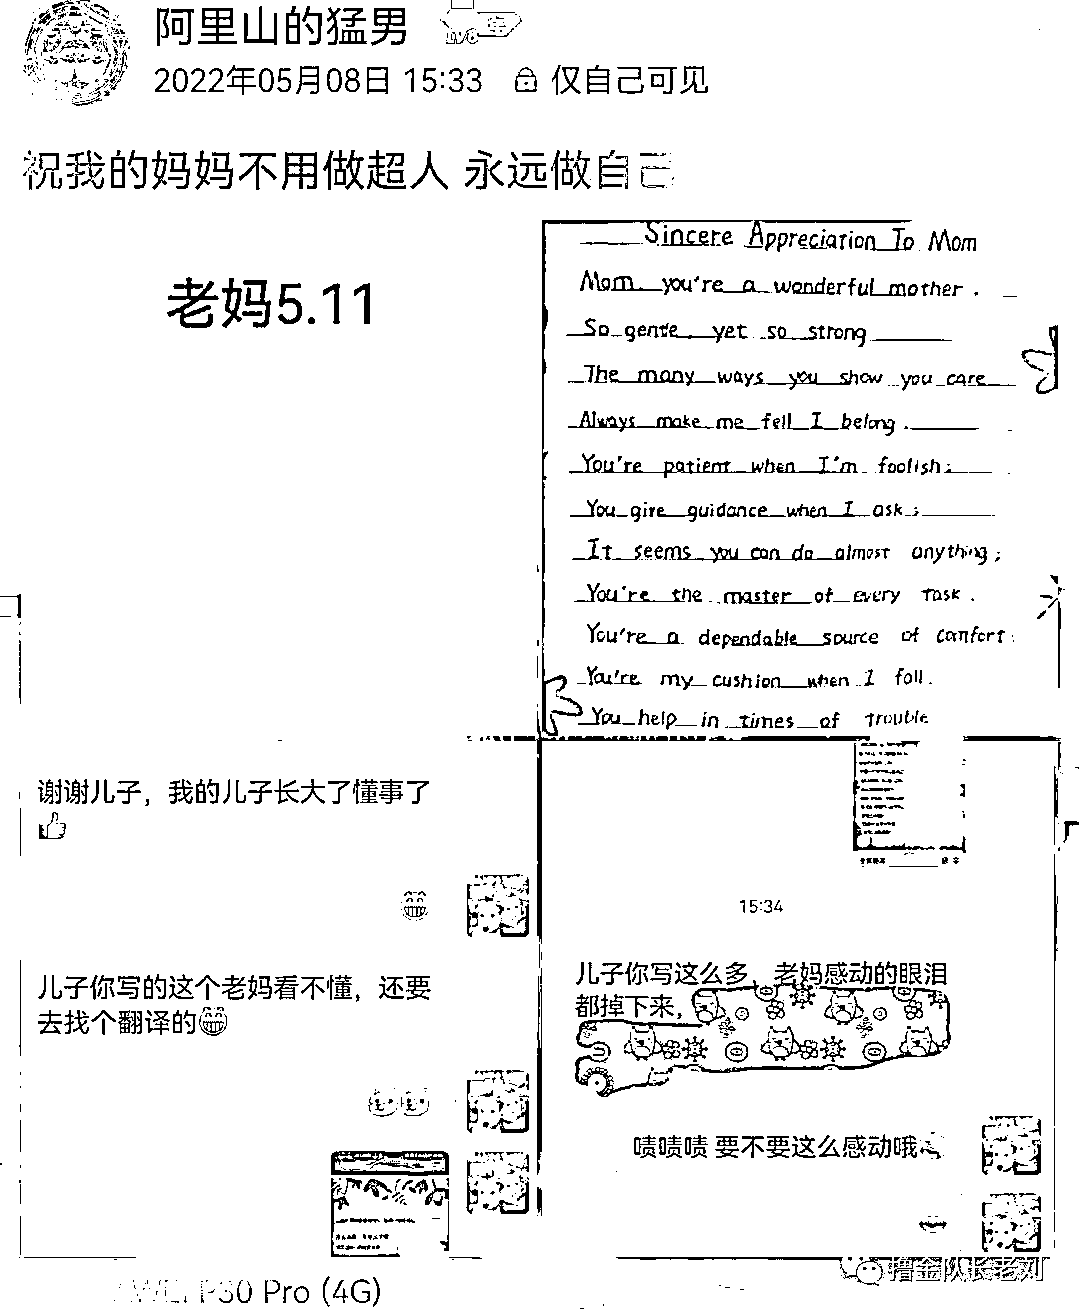 阿里山的猛男
LV6
2022年05月08日 15:33 仅自己可见
祝我的妈妈不用做超人 永远做自己
老妈5.11
Sincere Appreciation To Mom
Mom you're a wonderful mother .
So gentle, yet so strong
The many ways you show you care
Always make me fell I belong .
You're patient when I'm foolish;
You give guidance when I ask ;
It seems you can do almost anything ;
You're the master of every task .
You're a dependable source of comfort.
You're my cushion when I fall .
You help in times of trouble
谢谢儿子，我的儿子长大了懂事了
儿子你写的这个老妈看不懂，还要
去找个翻译的
15:34
儿子你写这么多，老妈感动的眼泪
都掉下来，
啧啧啧 要不要这么感动哦
撸金队长老刘
P30 Pro (4G)